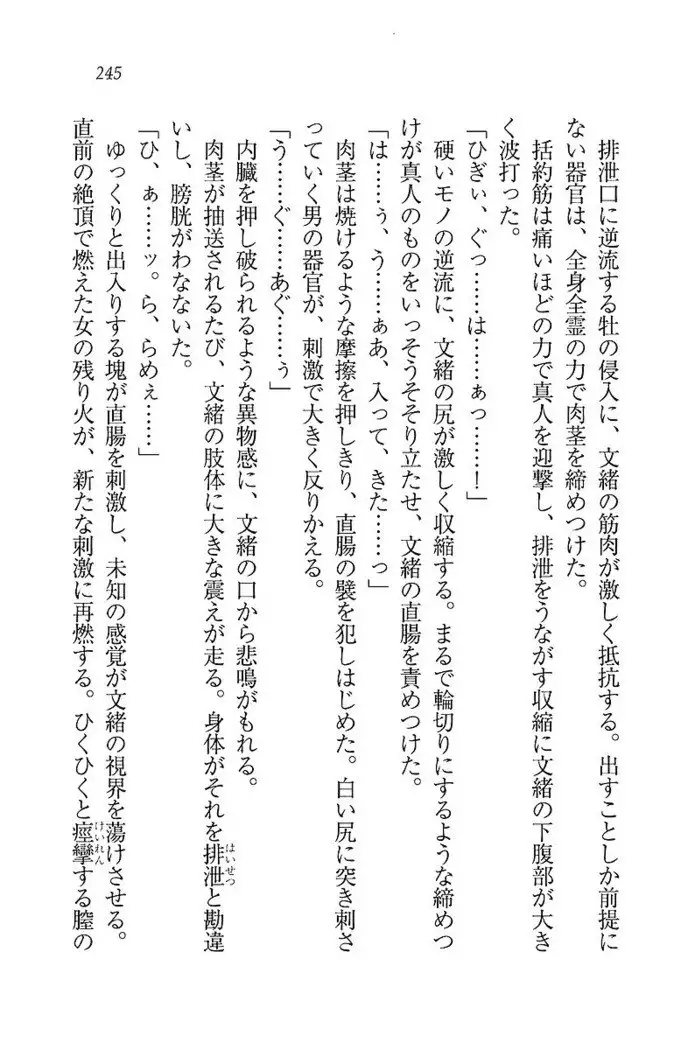 245
排泄口に逆流する牡の侵入に、文緒の筋肉が激しく抵抗する。出すことしか前提に
ない器官は、全身全霊の力で肉茎を締めつけた。
括約筋は痛いほどの力で真人を迎撃し、排泄をうながす収縮に文緒の下腹部が大き
く波打った。
「ひぎぃ、ぐっ……は……ぁっ……！」
硬いモノの逆流に、文緒の尻が激しく収縮する。まるで輪切りにするような締めつ
けが真人のものをいっそうそそり立たせ、文緒の直腸を責めつけた。
「は……ぅ、う……ぁあ、入って、きた……っ」
肉茎は焼けるような摩擦を押しきり、直腸の襞を犯しはじめた。白い尻に突き刺さ
っていく男の器官が、刺激で大きく反りかえる。
「う……ぐ……あぐ……ぅ」
内臓を押し破られるような異物感に、文緒の口から悲鳴がもれる。
肉茎が抽送されるたび、文緒の肢体に大きな震えが走る。身体がそれを排泄と勘違
いし、膀胱がわなないた。
「ひ、ぁ……ッ。ら、らめぇ……」
ゆっくりと出入りする塊が直腸を刺激し、未知の感覚が文緒の視界を蕩けさせる。
直前の絶頂で燃えた女の残り火が、新たな刺激に再燃する。ひくひくと痙攣する膣の